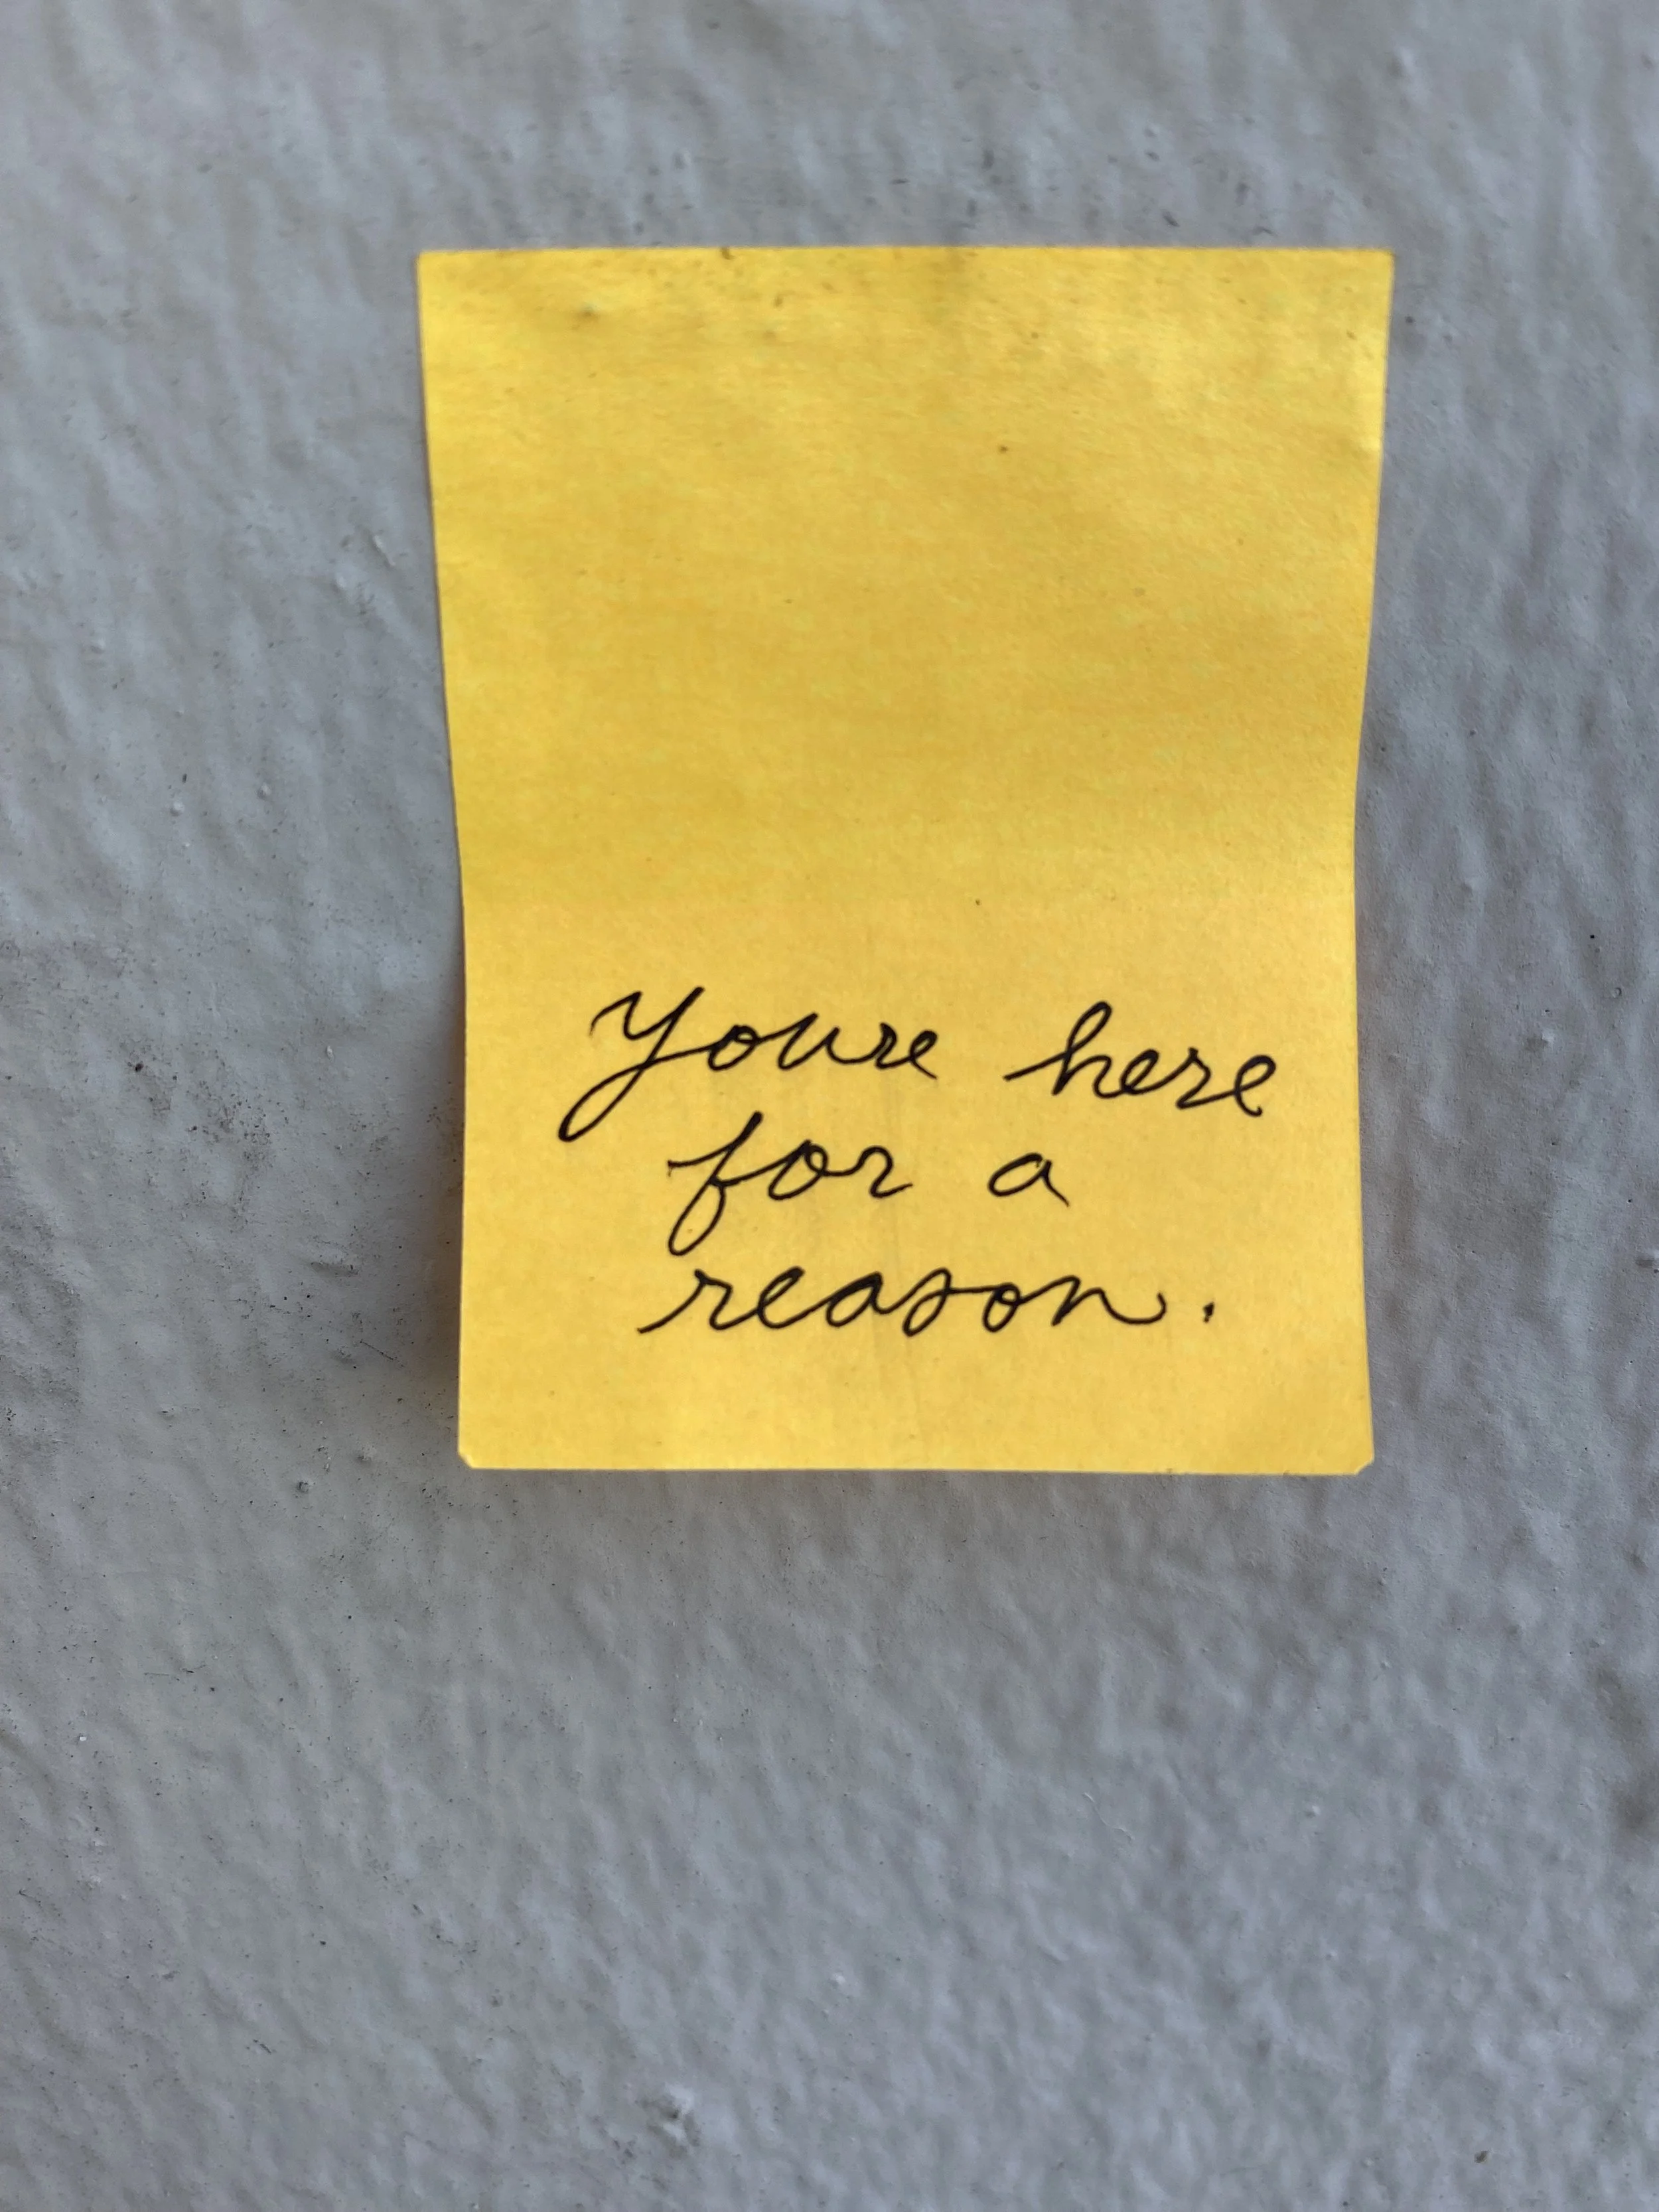 Youre here
for a
reason.